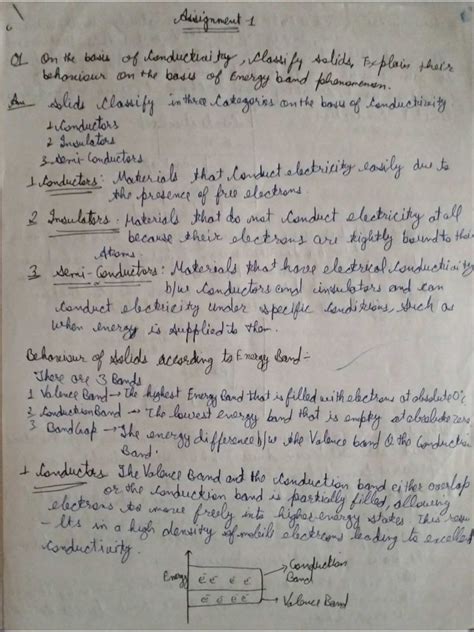 Assignment 1
Q1 On the basis of Conductivity, Classify solids, Explain their
behaviour on the basis of Energy band phenomenon.
Ans Solids Classify in three Categories on the basis of Conductivity
1 Conductors
2 Insulators
3 Semi-Conductors
1 Conductors: Materials that Conduct electricity easily due to
the presence of free electrons
2 Insulators: Materials that do not Conduct electricity at all
because their electrons are tightly bound to their
Atoms.
3 Semi-Conductors: Materials that have electrical Conductivity
b/w Conductors and insulators and can
Conduct electricity under specific Conditions, such as
when energy is supplied to them.
Behaviour of Solids according to Energy Band:-
There are 3 Bands
1 Valence Band → The highest Energy Band that is filled with electrons at absolute 0°C
2 Conduction Band → The lowest energy band that is empty at absolute Zero
3 Band Gap → The energy difference b/w the Valence band & the Conduction
Band.
1 Conductors The Valence Band and the Conduction band either overlap
or the Conduction band is partially filled, allowing
electrons to move freely into higher energy states This resu-
-lts in a high density of mobile electrons leading to excellent
Conductivity.
Energy
e e e e
→ Conduction
Band
e e e e
→ Valence Band